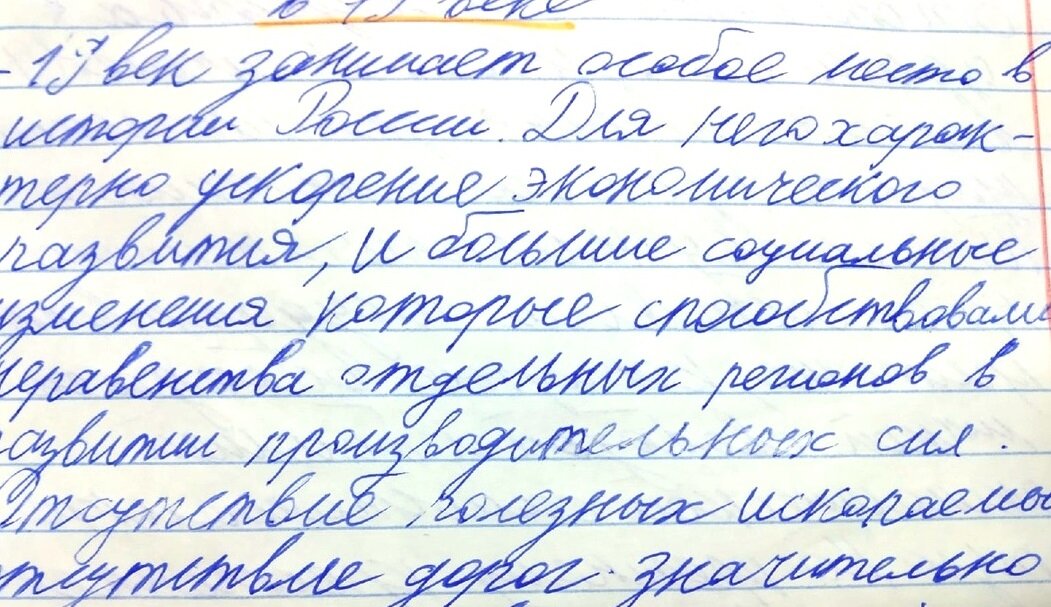 в 17 веке
- 17 век занимает особое место в
истории России. Для него харак-
терно ускорение экономического
развития, и большие социальные
изменения которые способствовали
неравенства отдельных регионов в
развитии производительных сил.
Отсутствие полезных ископаемы
отсутствие дорог значительно